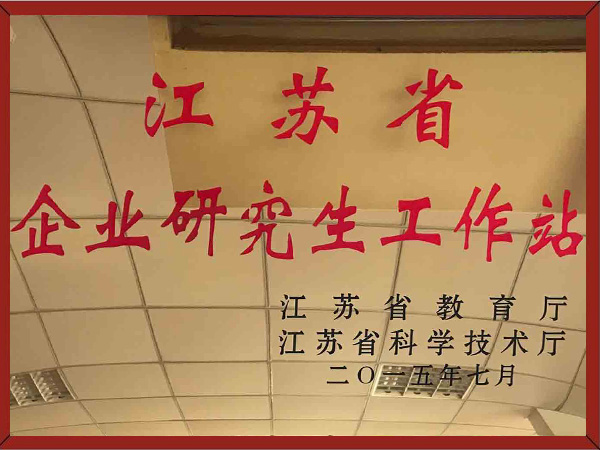 江苏省
企业研究生工作站
江苏省教育厅
江苏省科学技术厅
二〇一五年七月